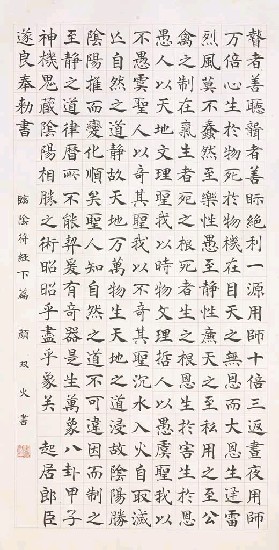 瞽者善聽聾者善眎絕利一源用師十倍三返晝夜用師
万倍心生於物死於物機在目天之無恩而大恩生迅雷
烈風莫不蠢然至樂性愚至靜性廉天之至私用之至公
禽之制在炁生者死之根死者生之根恩生於害害生於恩
愚人以天地文理聖我以時物文理哲人以愚虞聖我以
不愚虞聖人以奇其聖我以不奇其聖沉水入火自取滅
亡自然之道靜故天地万物生天地之道浸故陰陽勝
陰陽推而變化順矣聖人知自然之道不可違因而制之
至靜之道律曆所不能契爰有奇器是生萬象八卦甲子
神機鬼藏陰陽相勝之術昭昭乎盡乎象矣 起居郎臣
遂良奉勅書
臨陰符經下篇 顏双火書